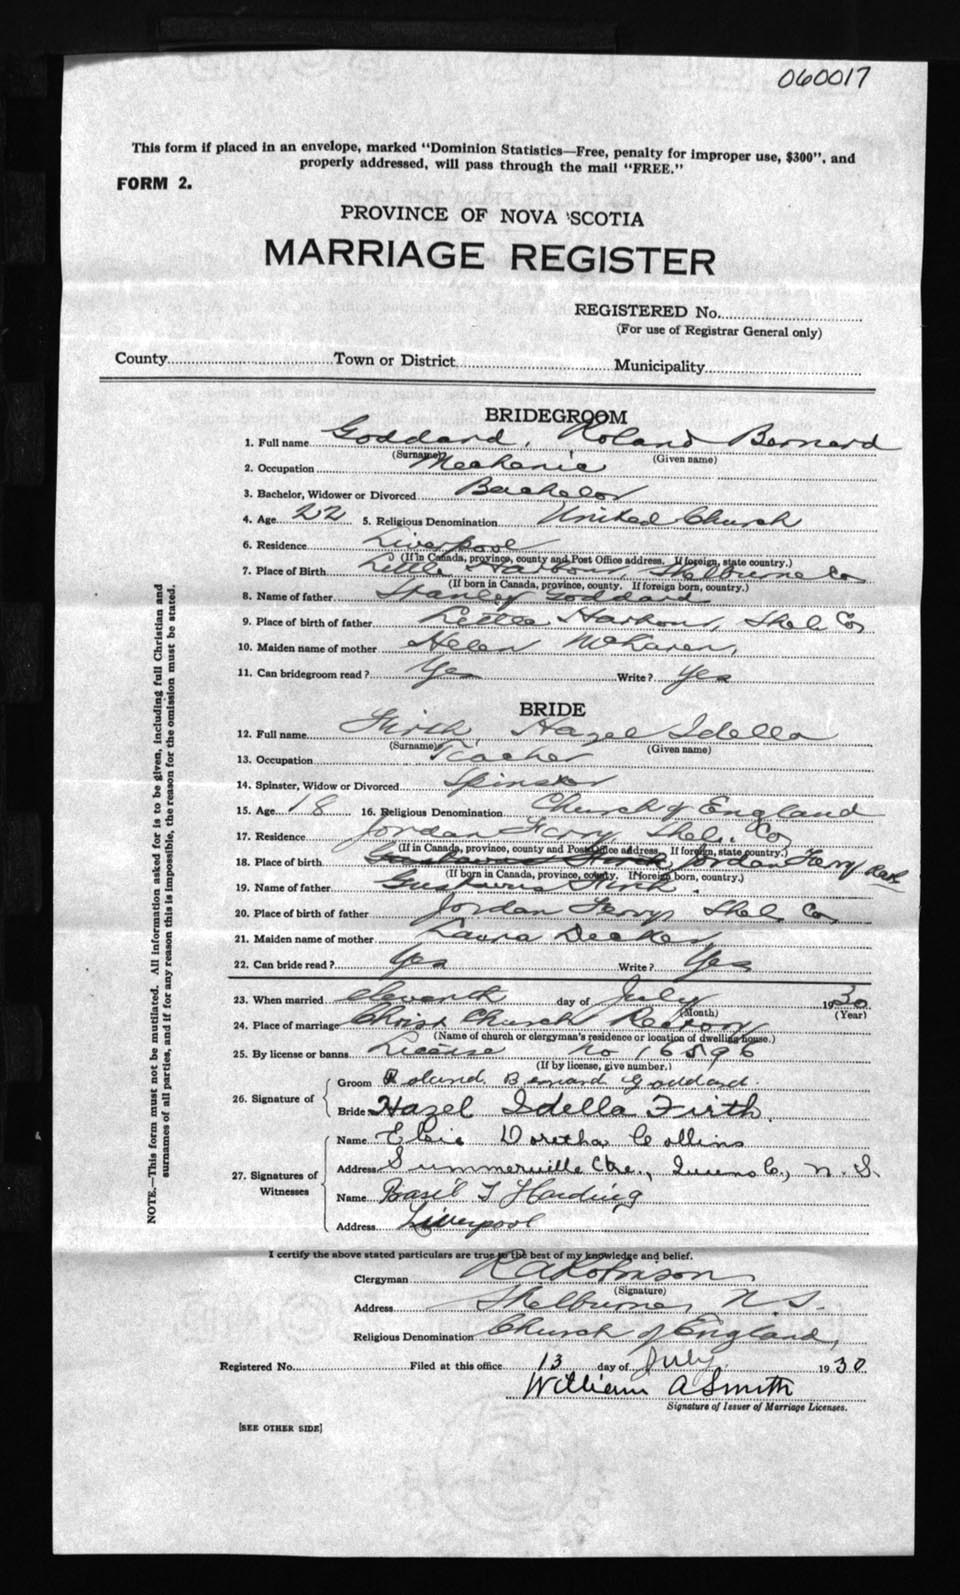 060017
This form if placed in an envelope, marked "Dominion Statistics—Free, penalty for improper use, $300", and
properly addressed, will pass through the mail "FREE."
FORM 2.
PROVINCE OF NOVA SCOTIA
MARRIAGE REGISTER
REGISTERED No.
(For use of Registrar General only)
County Town or District Municipality
BRIDEGROOM
1. Full name Goddard, Roland Bernard
(Surname) (Given name)
2. Occupation Mechanic
3. Bachelor, Widower or Divorced Bachelor
4. Age 22 5. Religious Denomination United Church
6. Residence Liverpool
(If in Canada, province, county and Post Office address. If foreign, state country.)
7. Place of Birth Little Harbour, Shelburne Co
(If born in Canada, province, county. If foreign born, country.)
8. Name of father Stanley Goddard
9. Place of birth of father Little Harbour, Shel. Co,
10. Maiden name of mother Helen
11. Can bridegroom read? Yes Write? Yes
BRIDE
12. Full name Firth Hazel Idella
(Surname) (Given name)
13. Occupation Teacher
14. Spinster, Widow or Divorced Spinster
15. Age 18 16. Religious Denomination Church of England
17. Residence Jordan Ferry Shel. Co,
(If in Canada, province, county and Post Office address. If foreign, state country.)
18. Place of birth Gustavus Firth Jordan Ferry
(If born in Canada, province, county. If foreign born, country.)
19. Name of father Gustavus Firth.
20. Place of birth of father Jordan Ferry Shel. Co,
21. Maiden name of mother Laura Decker
22. Can bride read? Yes Write? Yes
23. When married eleventh day of July 1930
(Month) (Year)
24. Place of marriage Christ Church Rectory
(Name of church or clergyman's residence or location of dwelling house.)
25. By license or banns License no 16596
(If by license, give number.)
26. Signature of
Groom Roland Bernard Goddard.
Bride Hazel Idella Firth.
27. Signatures of Witnesses
Name Elsie Doretha Collins
Address Summerville Ctre., Queens Co., N.S.
Name Basil T Harding
Address Liverpool
I certify the above stated particulars are true to the best of my knowledge and belief.
Clergyman R A Robinson
(Signature)
Address Shelburne, N.S.
Religious Denomination Church of England,
Registered No. Filed at this office 13 day of July 1930
William A Smith
Signature of Issuer of Marriage Licenses.
[SEE OTHER SIDE]
NOTE.—This form must not be mutilated. All information asked for is to be given, including full Christian and
surnames of all parties, and if for any reason this is impossible, the reason for the omission must be stated.